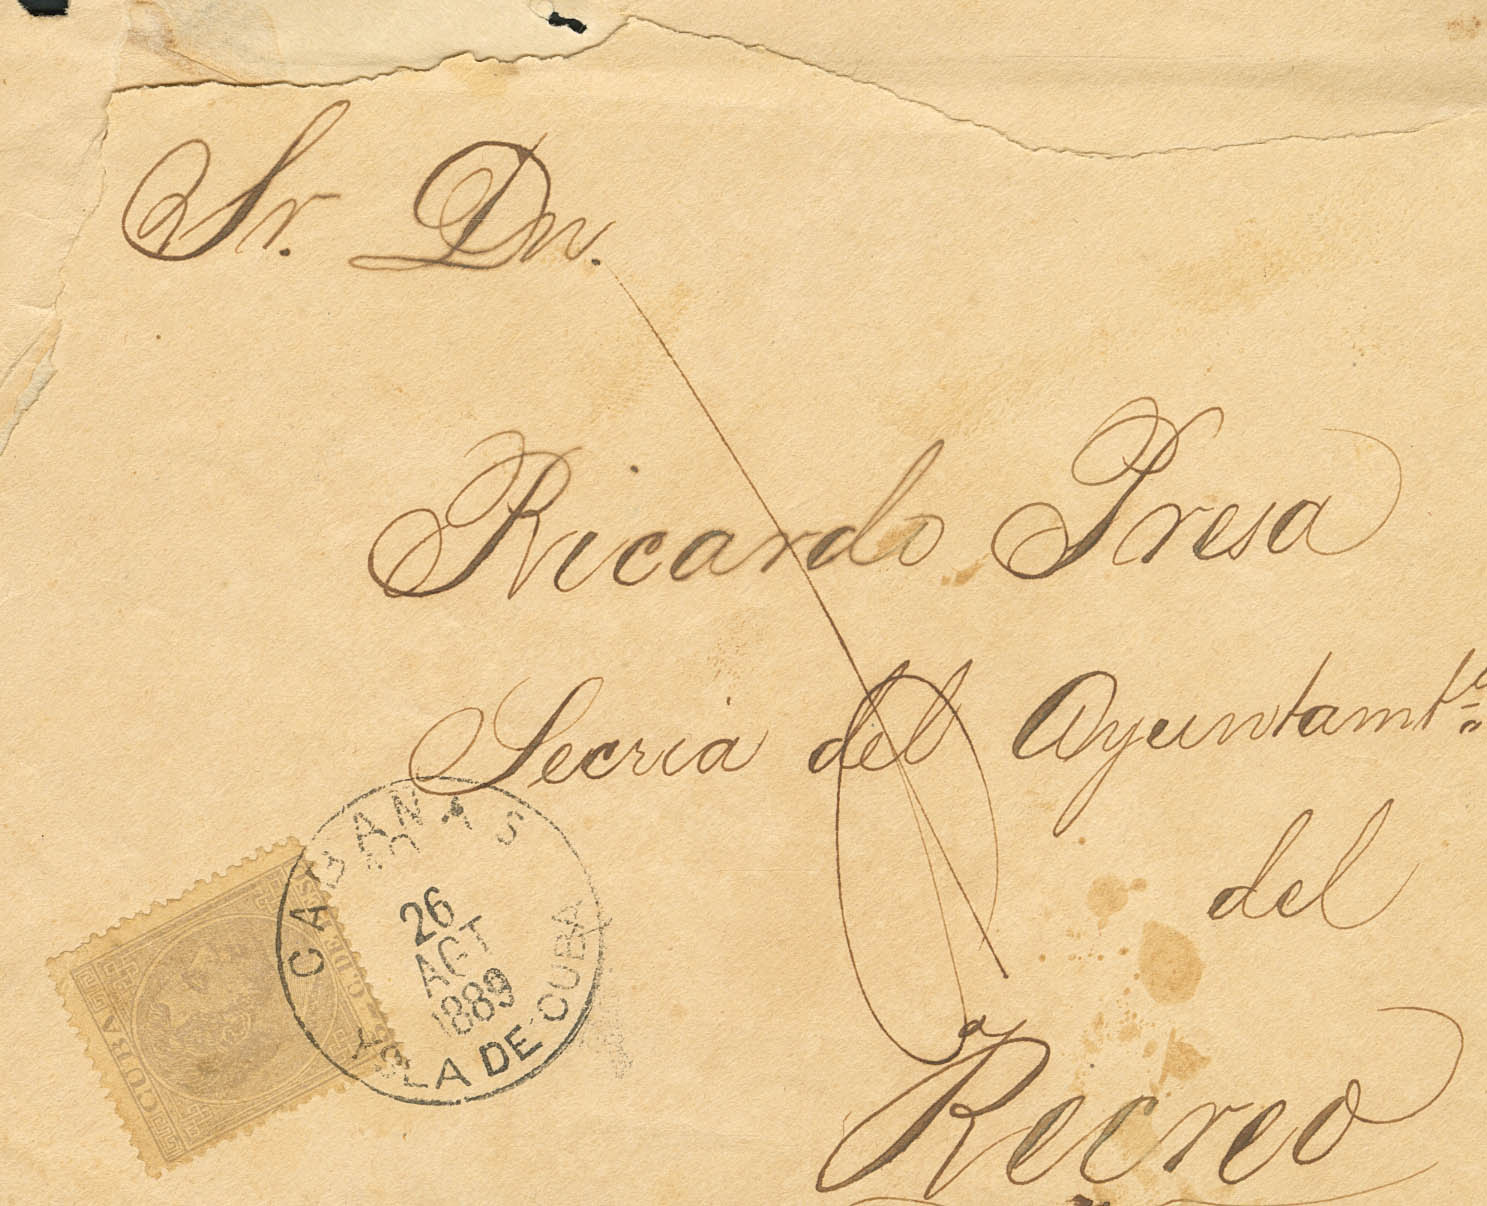 Sr. Dn.
Ricardo Presa
Secria del Ayuntamto
del
Recreo
CABANAS
26
AGT
1889
YSLA DE CUBA
CUBA